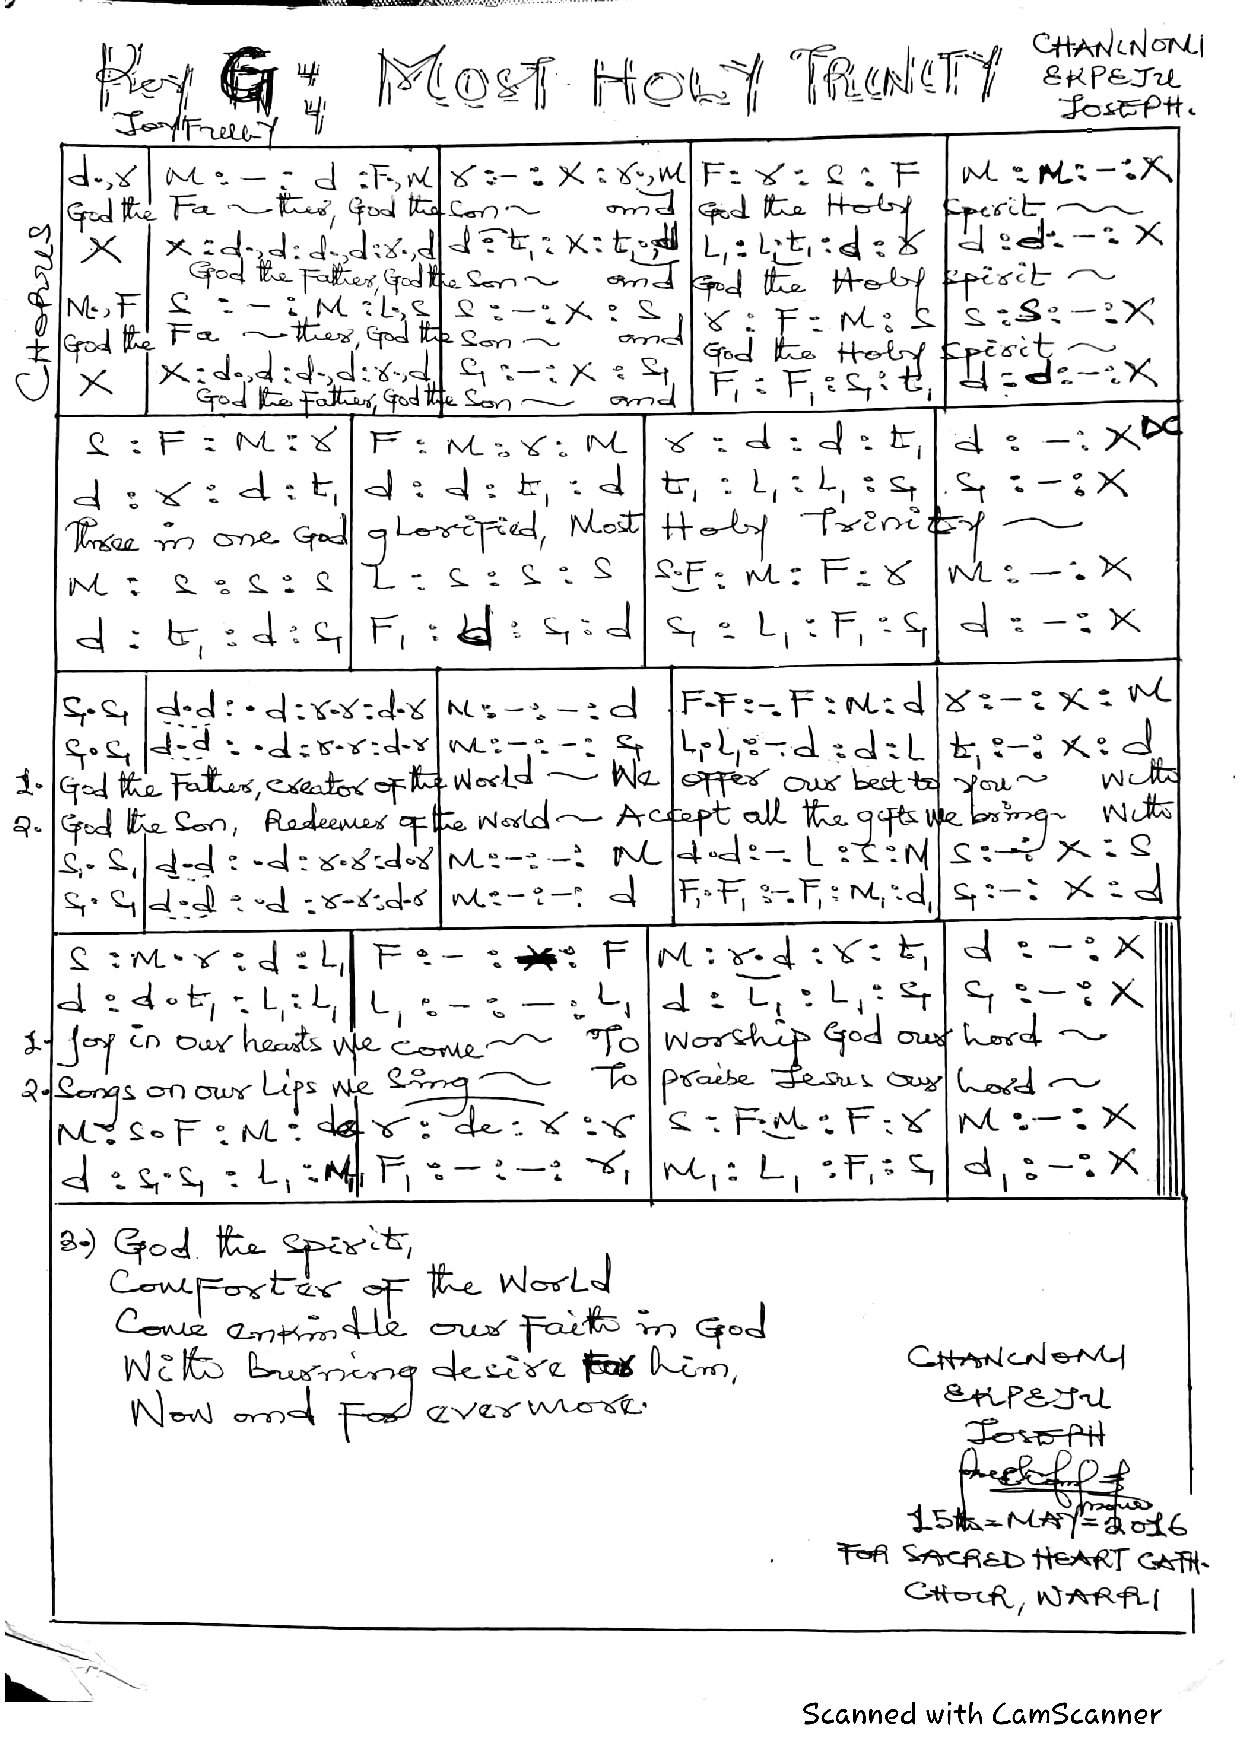 Key G 4/4 MOST HOLY TRINITY
CHANLNOMI
EKPEJU
JOSEPH.
Joyfully
CHORUS
d.,r | M : – : d : F., M | r : – : X : r., M | F : r : S : F | M : M : – : X
God the Fa ~ ther, God the Son ~ and God the Holy Spirit ~
X | X : d., d : d., d : r., d | d : t, : X : t, . d | L, : L, . t, : d : r | d : d : – : X
God the Father, God the Son ~ and God the Holy Spirit ~
M., F | S : – : M : L., S | S : – : X : S | r : F : M : S | S : S : – : X
God the Fa ~ ther, God the Son ~ and God the Holy Spirit ~
X | X : d., d : d., d : r., d | S, : – : X : S, | F, : F, : S, : t, | d : d : – : X
God the Father, God the Son ~ and
S : F : M : r | F : M : r : M | r : d : d : t, | d : – : X DC
d : r : d : t, | d : d : t, : d | t, : L, : L, : S, | S, : – : X
Three in one God glorified, Most Holy Trinity ~
M : S : S : S | L : S : S : S | S.F : M : F : r | M : – : X
d : t, : d : S, | F, : d : S, : d | S, : L, : F, : S, | d : – : X
S, . S, | d . d : . d : r . r : d . r | M : – : – : d | F . F : – . F : M : d | r : – : X : M
S, . S, | d . d : . d : r . r : d . r | M : – : – : S, | L, . L, : – . d : d : L | t, : – : X : d
1. God the Father, Creator of the World ~ We offer our best to you ~ With
2. God the Son, Redeemer of the World ~ Accept all the gifts we bring ~ With
S, . S, | d . d : . d : r . r : d . r | M : – : – : M | d . d : – . L : S : M | S : – : X : S
S, . S, | d . d : . d : r . r : d . r | M : – : – : d | F, . F, : – . F, : M, : d, | S, : – : X : d
S : M . r : d : L, | F : – : : F | M : r . d : r : t, | d : – : X
d : d . t, : L, : L, | L, : – : – : L, | d : L, : L, : S, | S, : – : X
1. Joy in our hearts we come ~ To worship God our Lord ~
2. Songs on our Lips we Sing ~ To praise Jesus our Lord ~
M : S . F : M : de | r : de : r : r | S : F . M : F : r | M : – : X
d : S, . S, : L, : M, | F, : – : – : r, | M, : L, : F, : S, | d, : – : X
3.) God the spirit,
Comforter of the World
Come enkindle our Faith in God
With burning desire for him,
Now and For evermore.
CHANLNOMI
EKPEJU
JOSEPH
15th = MAY = 2016
FOR SACRED HEART CATH.
CHOIR, WARRI
Scanned with CamScanner